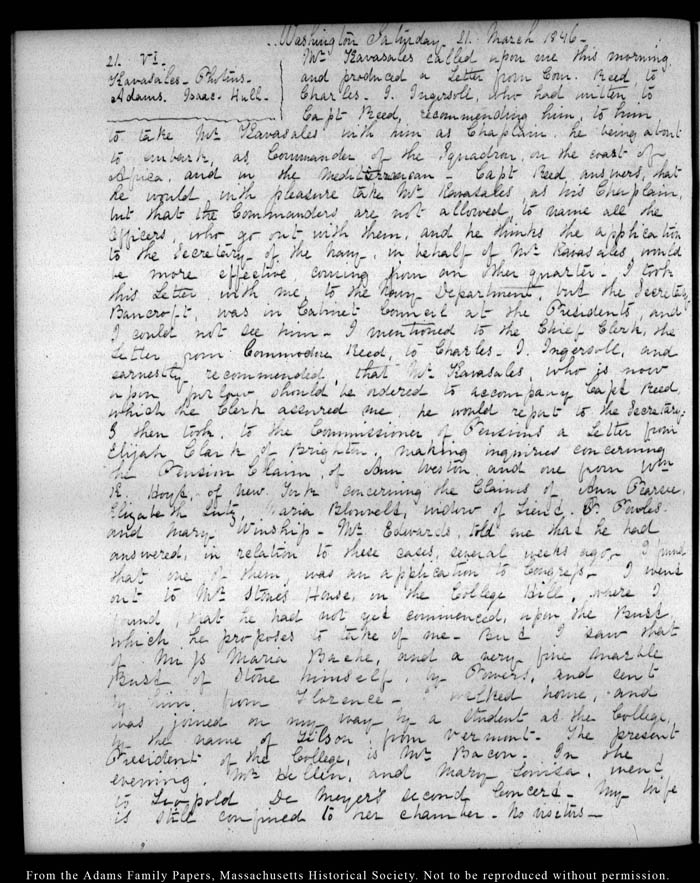 Washington Saturday 21. March 1846 –
21. VI.
Kavasales – Photius –
Adams. Isaac – Hull –
Mr Kavasales called upon me this morning
and produced a Letter from Com. Reed, to
Charles – J. Ingersoll, who had written to
Capt Reed, recommending him to him
to take Mr Kavasales with him as Chaplain he being about
to embark, as Commander of the Squadron, on the coast of
Africa, and in the Mediterranean – Capt Reed answers, that
he would with pleasure take Mr Kavasales, as his Chaplain,
but that the Commanders are not allowed, to name all the
Officers, who go out with them, and he thinks the application
to the Secretary of the Navy, in behalf of Mr Kavasales, would
be more effective coming from an other quarter – I took
this Letter with me, to the Navy Department, but the Secretary
Bancroft, was in Cabinet Council at the Presidents, and
I could not see him – I mentioned to the Chief Clerk, the
Letter from Commodore Reed, to Charles – J. Ingersoll, and
earnestly recommended, that Mr Kavasales, who is now
upon furlow should be ordered to accompany Capt Reed,
which the Clerk assured me, he would report to the Secretary;
I then took, to the Commissioner of Pensions a Letter from
Elijah Clark of Brighton, making inquiries concerning
the Pension Claim, of Ann Weston, and one from Wm
K. of New York concerning the Claims of Ann Pearce,
Elizabeth Maria widow of Lieut.
and Mary Winship – Mr Edwards, told me that he had
answered, in relation to these cases, several weeks ago – I found
that one of them, was an application to Congress – I went
out to Mr Stone's House, on the College Hill, where I
found, that he had not yet commenced, upon the Bust,
which he proposes to take of me – But I saw that
of Miss Maria Bache, and a very fine marble
Bust of Stone himself, by Powers, and sent
by him from Florence – I walked home, and
was joined on my way by a student at the College,
by the name of Gilson, from Vermont – The present
President of the College, is Mr Bacon. In the
evening. Mr Hellen, and Mary Louisa, went
to Leopold De Meyer's second Concert – My Wife
is still confined to her chamber – No visitors –
From the Adams Family Papers, Massachusetts Historical Society. Not to be reproduced without permission.